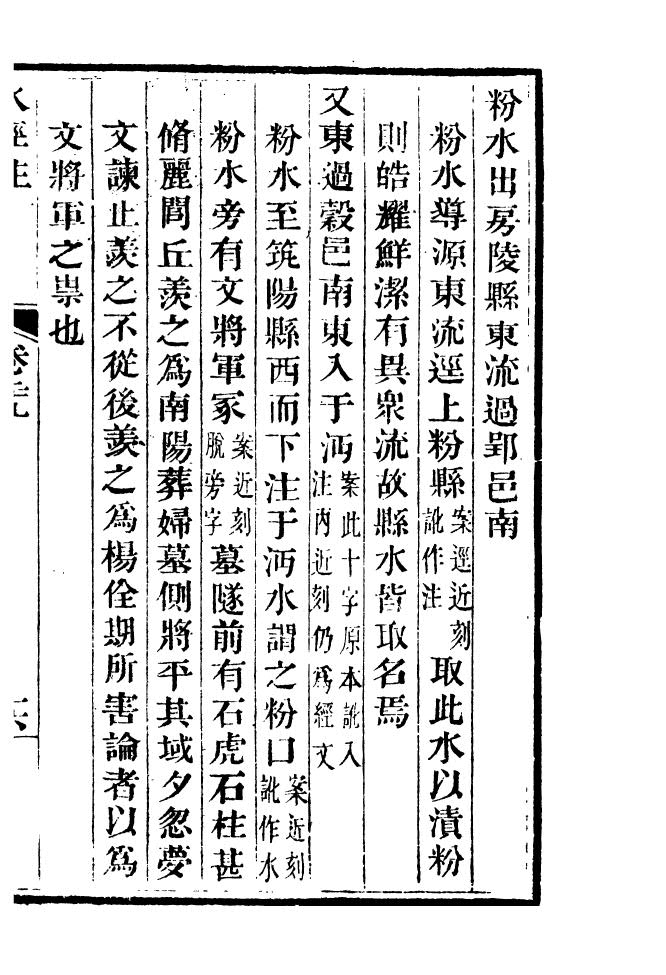 粉水出房陵縣東流過郢邑南
粉水導源東流逕上粉縣案逕近刻訛作注取此水以漬粉
則皓耀鮮潔有異衆流故縣水皆取名焉
又東過穀邑南東入于沔案此十字原本訛入注內近刻仍爲經文
粉水至筑陽縣西而下注于沔水謂之粉口案近刻訛作水
粉水旁有文將軍冢案近刻脫旁字墓隧前有石虎石柱甚
脩麗閭丘羨之爲南陽葬婦墓側將平其域夕忽夢
文諫止羨之不從後羨之爲楊佺期所害論者以爲
文將軍之祟也
水經注
卷